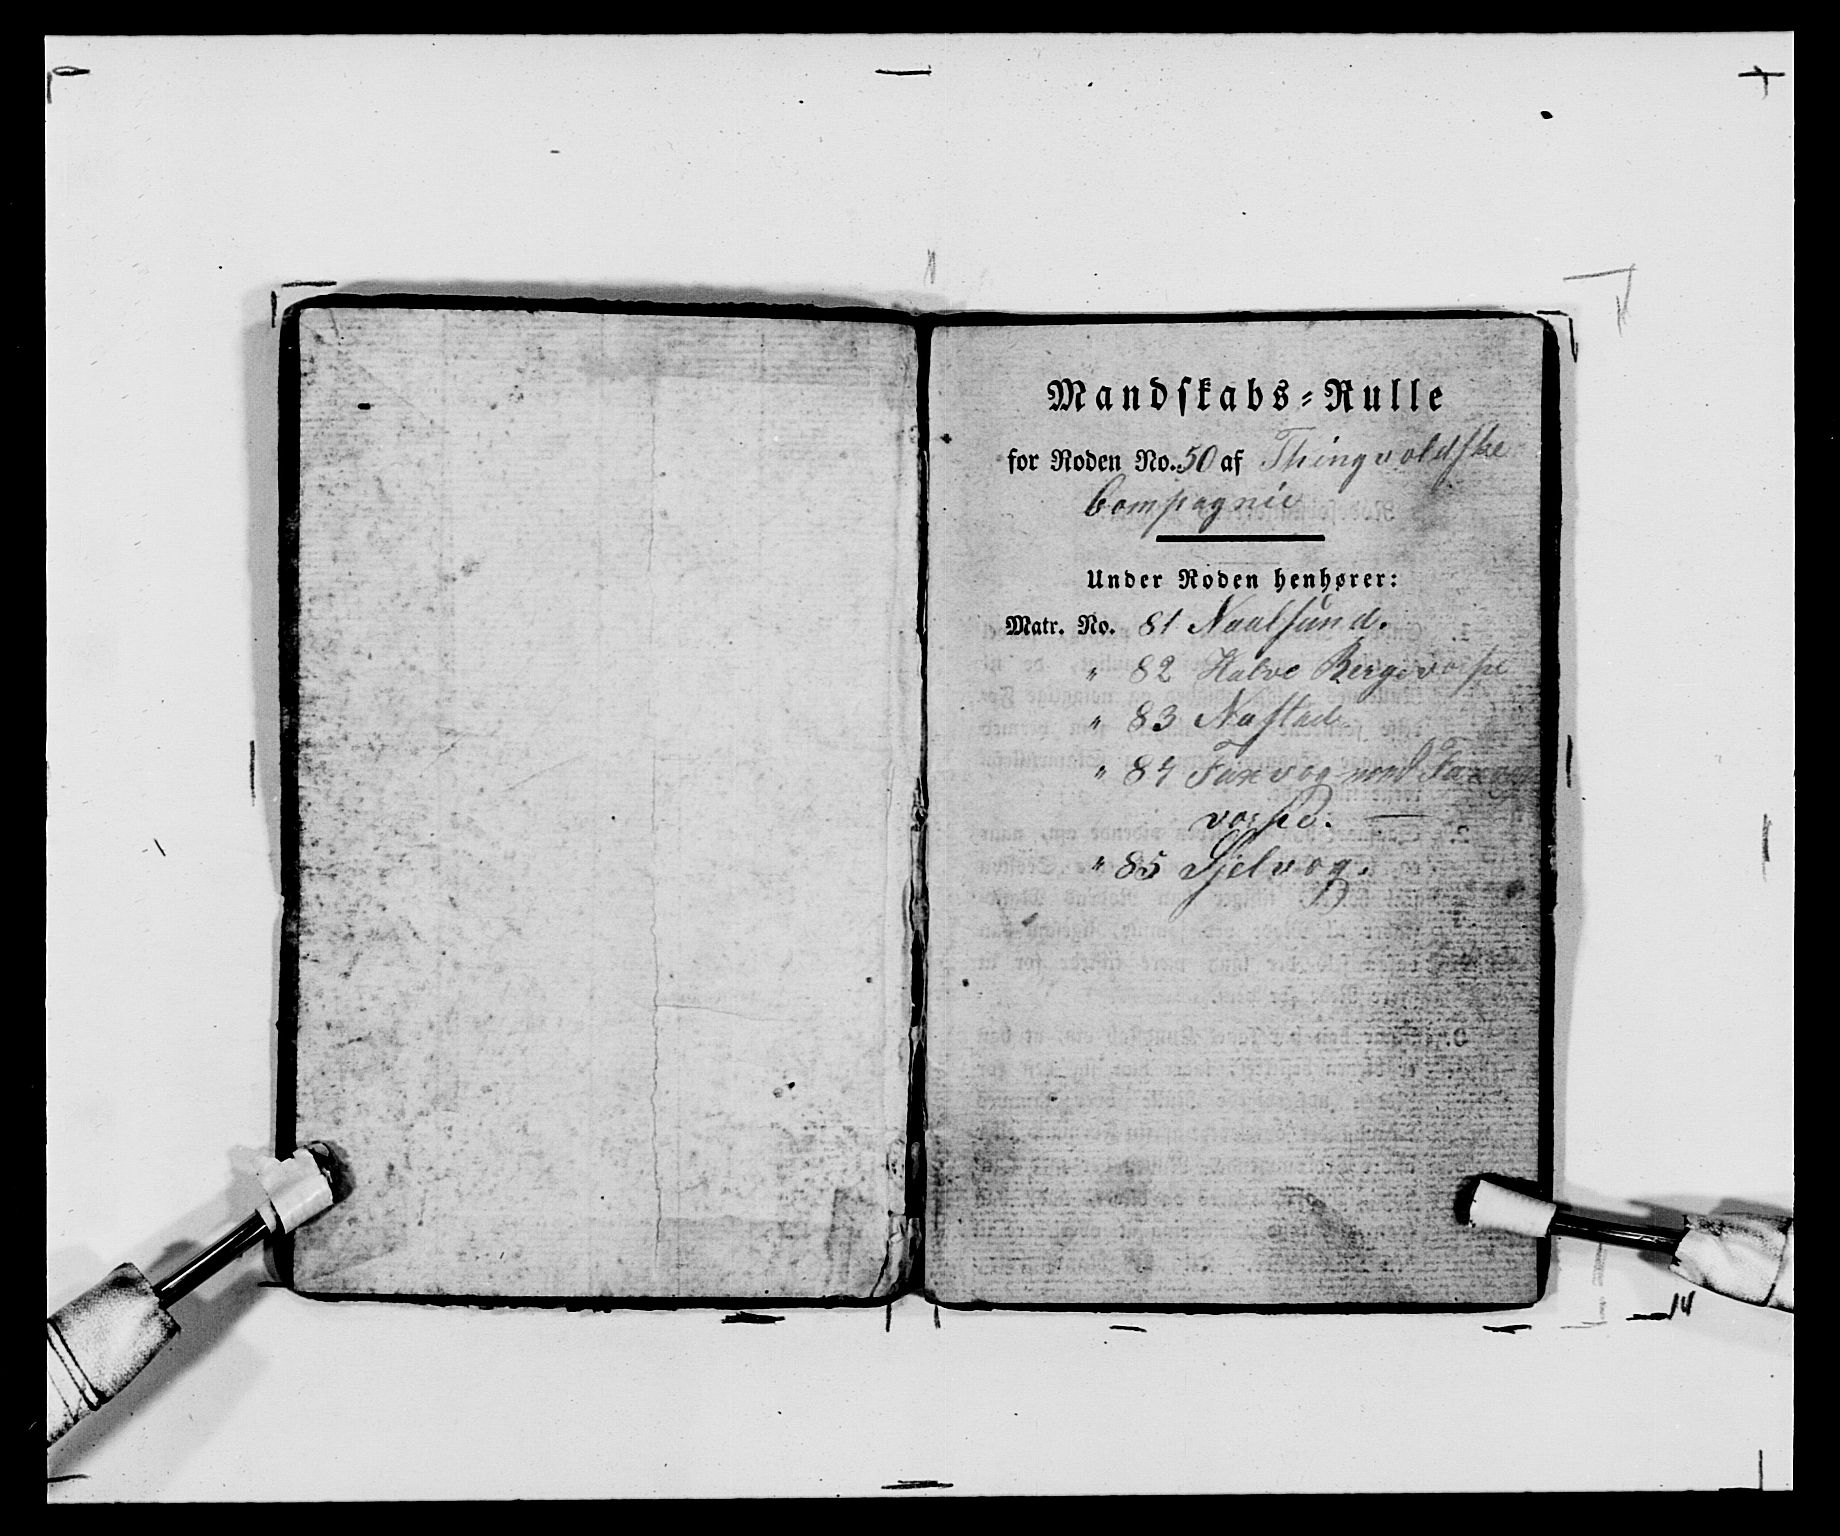 Mandskabs-Rulle
for Roden No. 50 af Thingvoldske
Compagnie
Under Roden henhører:
Matr. No. 81 Naalsund.
" 82 Halve Bergsvoispe
" 83 Nastad
" 84 Farvog
" 85 Sjelvog.
14